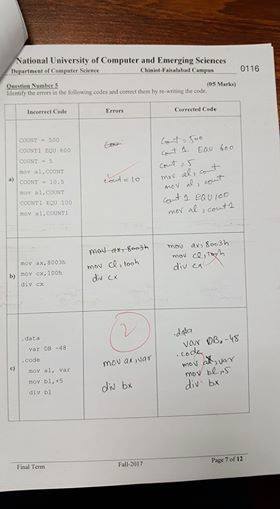 National University of Computer and Emerging Sciences
Department of Computer Science Chiniot-Faisalabad Campus 0116
Question Number 5 (05 Marks)
Identify the errors in the following codes and correct them by re-writing the code.
Incorrect Code Errors Corrected Code
a)
COUNT = 500
COUNT1 EQU 600
COUNT = 5
mov al,COUNT
COUNT = 10.5
mov al,COUNT
COUNT1 EQU 100
mov al,COUNT1
cout = 10
cout = 500
cout 1 EQU 600
cout = 5
mov al, cout
mov al, cout
cout 1 EQU 100
mov al, cout1
b)
mov ax,8003h
mov cx,100h
div cx
mov ax, 8003h
mov cl, 100h
div cx
mov ax, 8003h
mov cl, 100h
div cx
c)
.data
var DB -48
.code
mov al, var
mov bl,+5
div bl
2
mov ax, var
div bx
.data
var DB, -48
.code
mov al, var
mov bl, 5
div bx
Page 7 of 12
Final Term Fall-2017